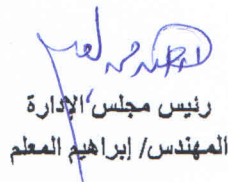 رئيس مجلس الإدارة
المهندس/ إبراهيم المعلم